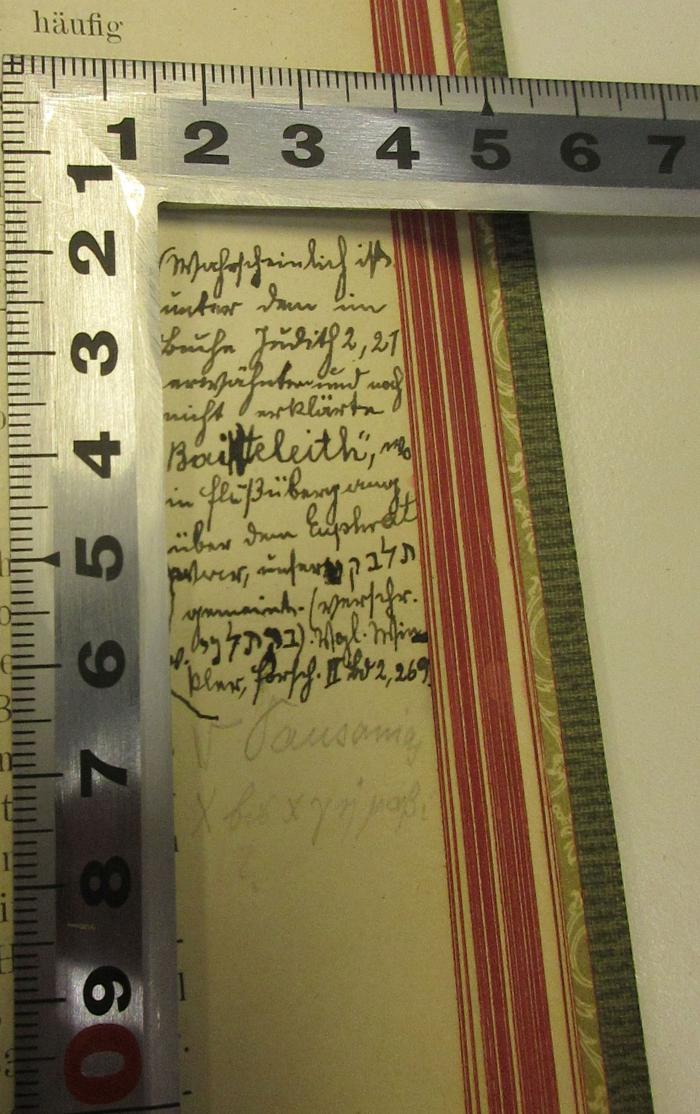 häufig
1 2 3 4 5 6 7
1
2
3
4
5
6
7
8
9
0
(Wahrscheinlich ist
unter dem im
Buche Judith 2, 21
erwähnten und noch
nicht erklärte
"Baikteleith", wo
in Flußübergang
über den Euphrat
war, unser תלבק
gemeint. (verschr.
Vgl. Win-
kler, Forsch. II Bd 2, 269.
Pausanias
X bis X